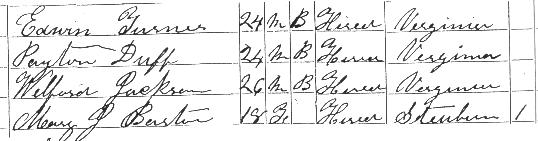 Edwin Turner 24 M B Hired Virginia
Payton Duff 24 M B Hired Virginia
Welford Jackson 26 M B Hired Virginia
Mary J Barton 18 F Hired Steuben 1